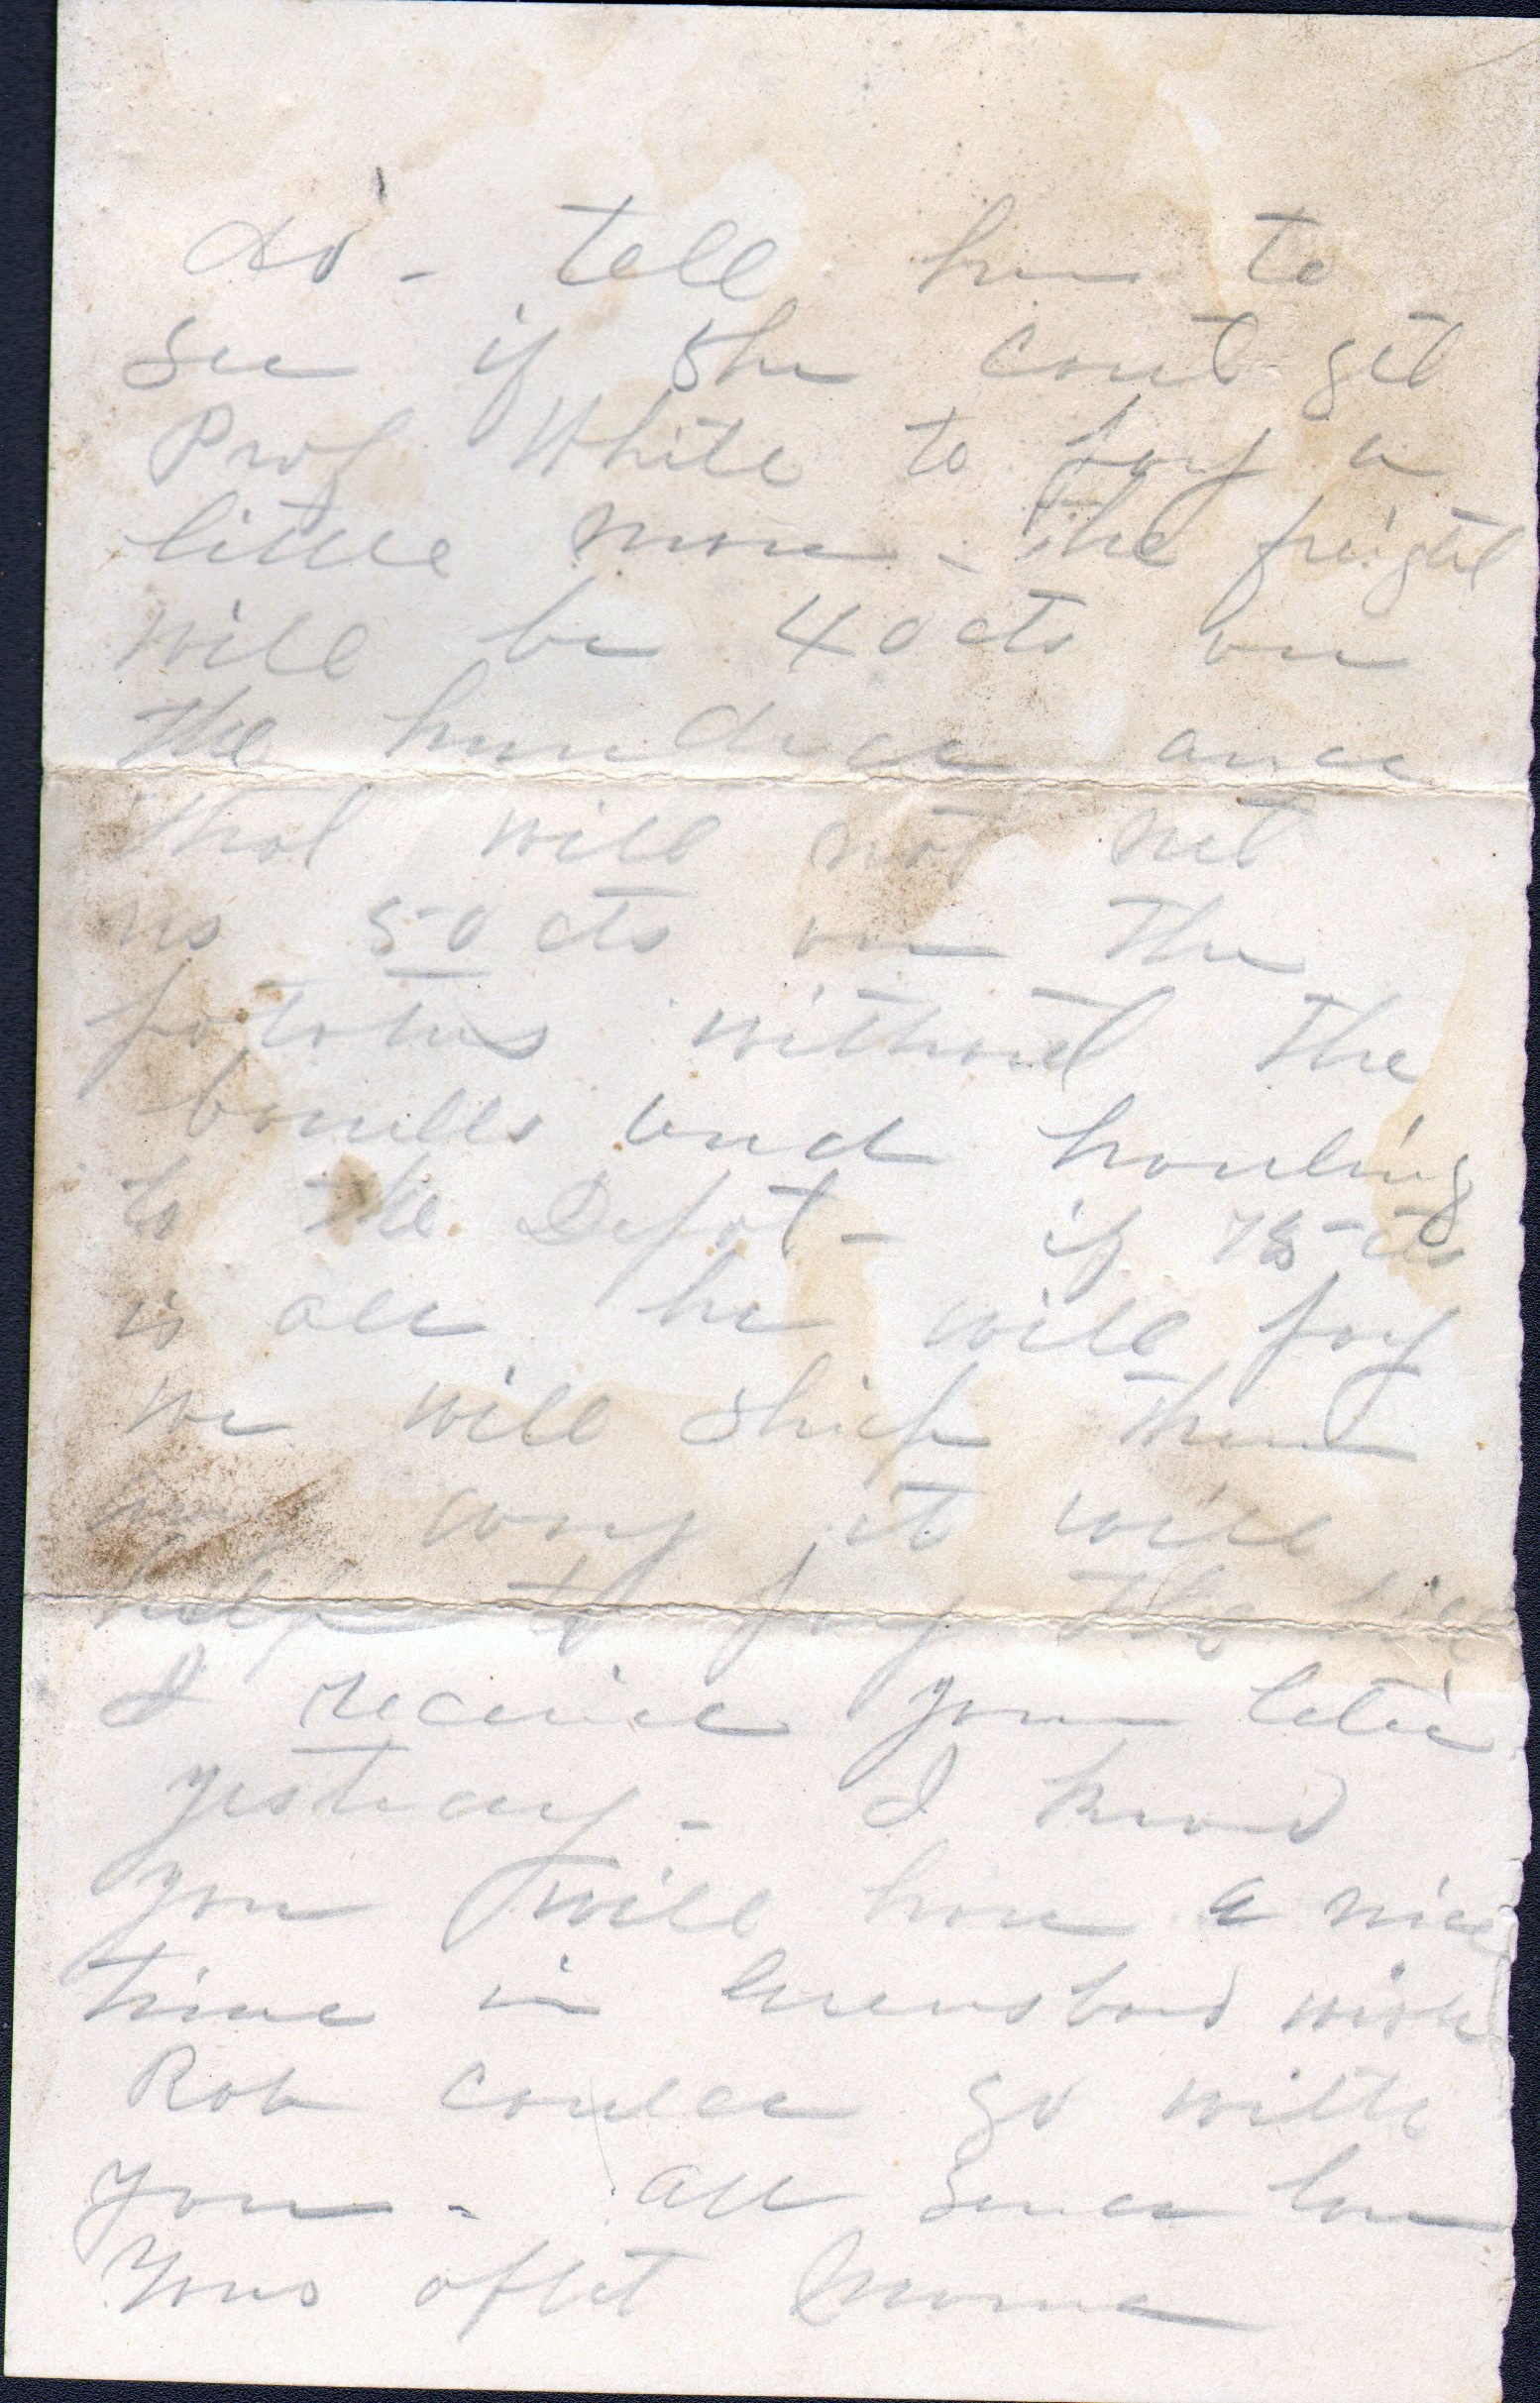 do - tell her to
see if she cant get
Prof White to pay a
little more - the freight
will be 40 cts on
the hundred and
that will not net
us 50 cts on the
potatoes without the
barrells and hauling
to the Depot - if 75 cts
is all he will pay
we will ship them
any way it will
help to pay the
I receive your letter
yesterday - I know
you will have a nice
time in Greensboro wish
Rob could go with
you - all send love
Yours affet Mama